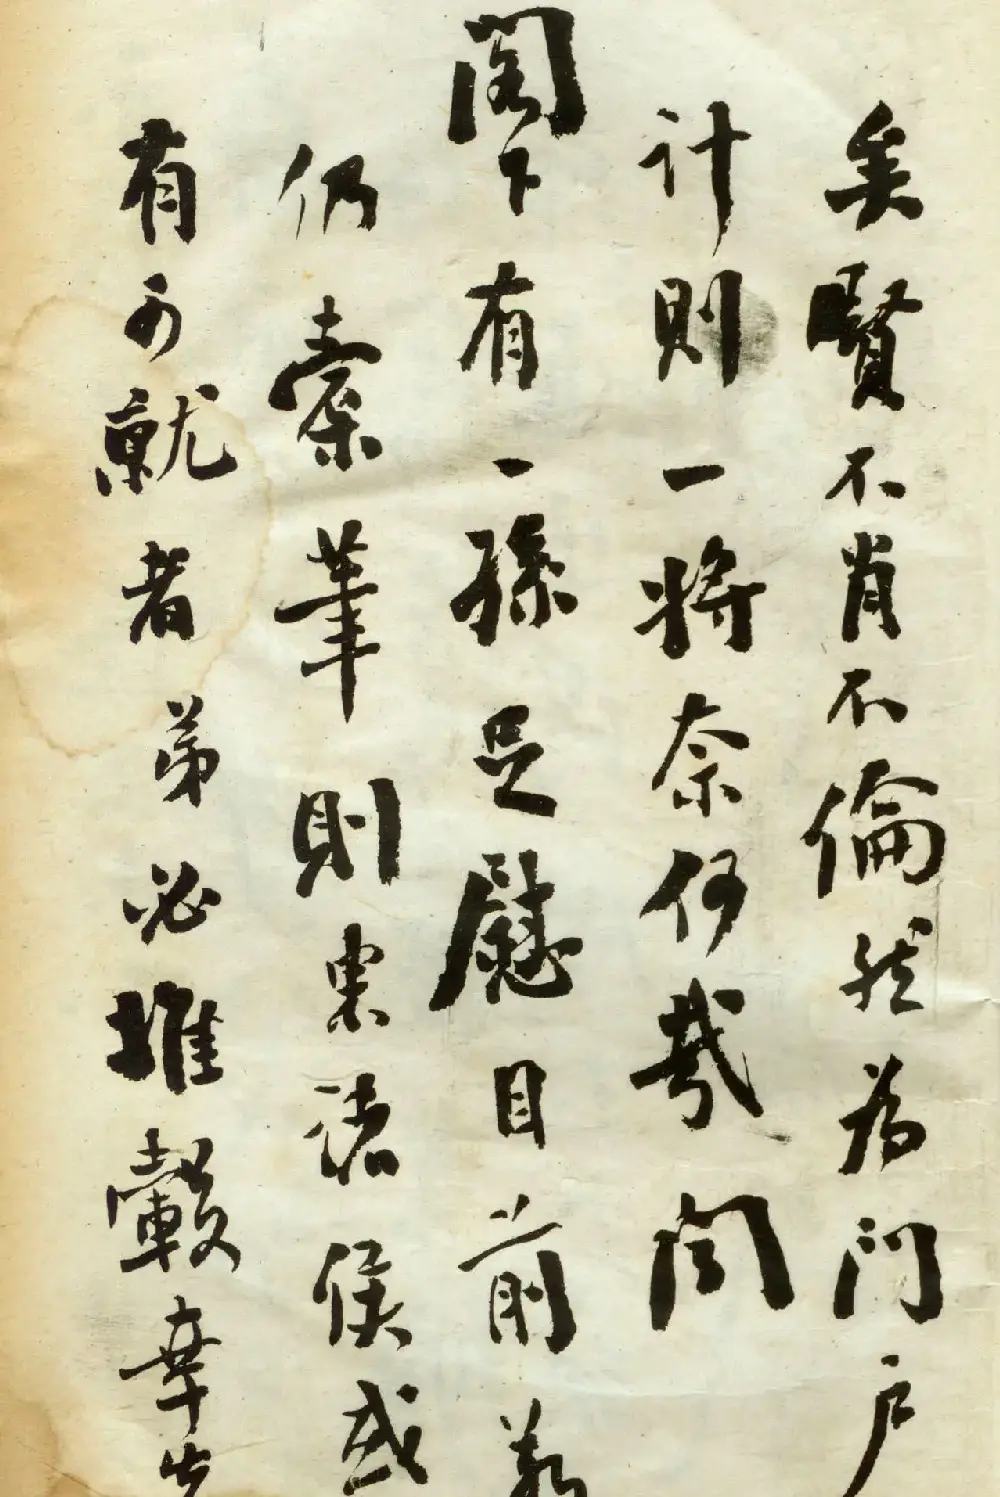 矣賢不肖不倫然為門戶
計則一將奈何哉聞
閣下有一孫足慰目前若
仍橐筆則東諸侯或
有可就者弟必推轂幸先